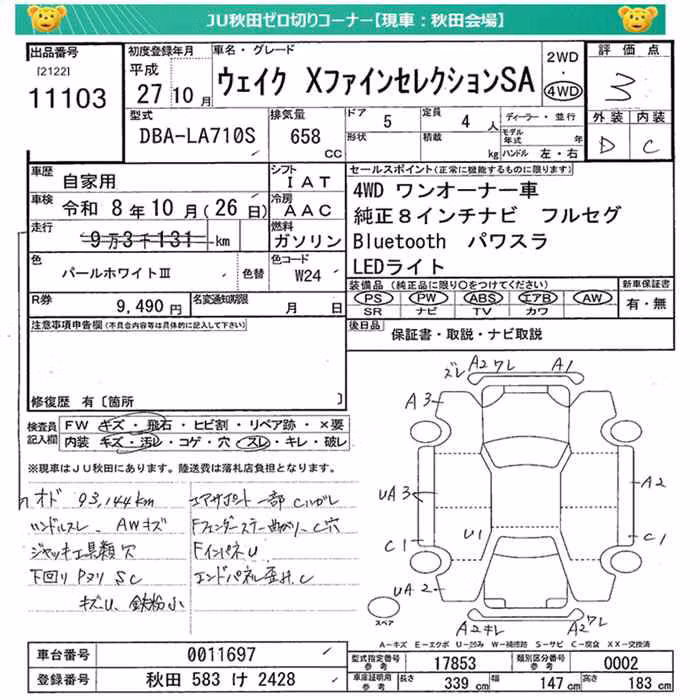 JU秋田ゼロ切りコーナー【現車：秋田会場】
出品番号
[2122]
11103
初度登録年月
平成
27 10 月
車名・グレード
ウェイク XファインセレクションSA
2WD
・
4WD
評価点
3
外装 内装
D C
型式
DBA-LA710S
排気量
658
CC
ドア
5
定員
4 人
形状
積載
kg
ディーラー・並行
モデル年式 年
ハンドル 左・右
車歴
自家用
シフト
IAT
車検 令和 8年 10月(26日)
冷房
AAC
走行
9万3千131 km
燃料
ガソリン
色
パールホワイトⅢ
色替
色コード
W24
R券
9,490 円
名変通知期限
月 日
セールスポイント(正常に機能するものに限ります)
4WD ワンオーナー車
純正8インチナビ フルセグ
Bluetooth パワスラ
LEDライト
装備品(純正品に限り○をつけてください)
PS PW ABS エアB AW
SR ナビ TV カワ
新車保証書
有・無
後日品
保証書・取説・ナビ取説
注意事項申告欄(不具合内容等は具体的に記入して下さい)
修復歴 有〔箇所 〕
検査員記入欄
FW キズ・飛石・ヒビ割・リペア跡・×要
内装 キズ・汚レ・コゲ・穴・スレ・キレ・破レ
※現車はJU秋田にあります。陸送費は落札店負担となります。
オド 93,144km
ハンドルスレ、AWキズ
ジャッキ工具類欠
下回りPヌリ SC
キズU、鉄粉小
エアサポート一部Cハガレ
Fフェンダーステー曲がり、C穴
FインパネU
エンドパネル歪み、C
ズレ A2ワレ A1
A3
UA3
C1
UA2
U1
A2
C1
A2キレ
A2ワレ
スペア
A-キズ E-エクボ U-凹み W-補修跡 S-サビ C-腐食 XX-交換済
車台番号
0011697
登録番号
秋田 583 け 2428
型式指定番号 参考
17853
類別区分番号 参考
0002
車庫証明用 参考
長さ 339 cm 幅 147 cm 高さ 183 cm